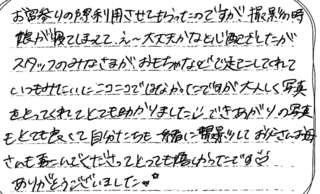 お宮参りの際利用させてもらったのですが 撮影の時
娘が寝てしまって、え〜大丈夫かなと心配でしたが
スタッフのみなさまがおもちゃなどで起こしてくれて
いつもみたいにニコニコではなかったですが大人しく写真
をとってくれてとても助かりました できあがりの写真
もとても良くて自分たちも一緒に撮影してお父さんお母
さんも喜んでくださってとっても嬉しかったです
ありがとうございました